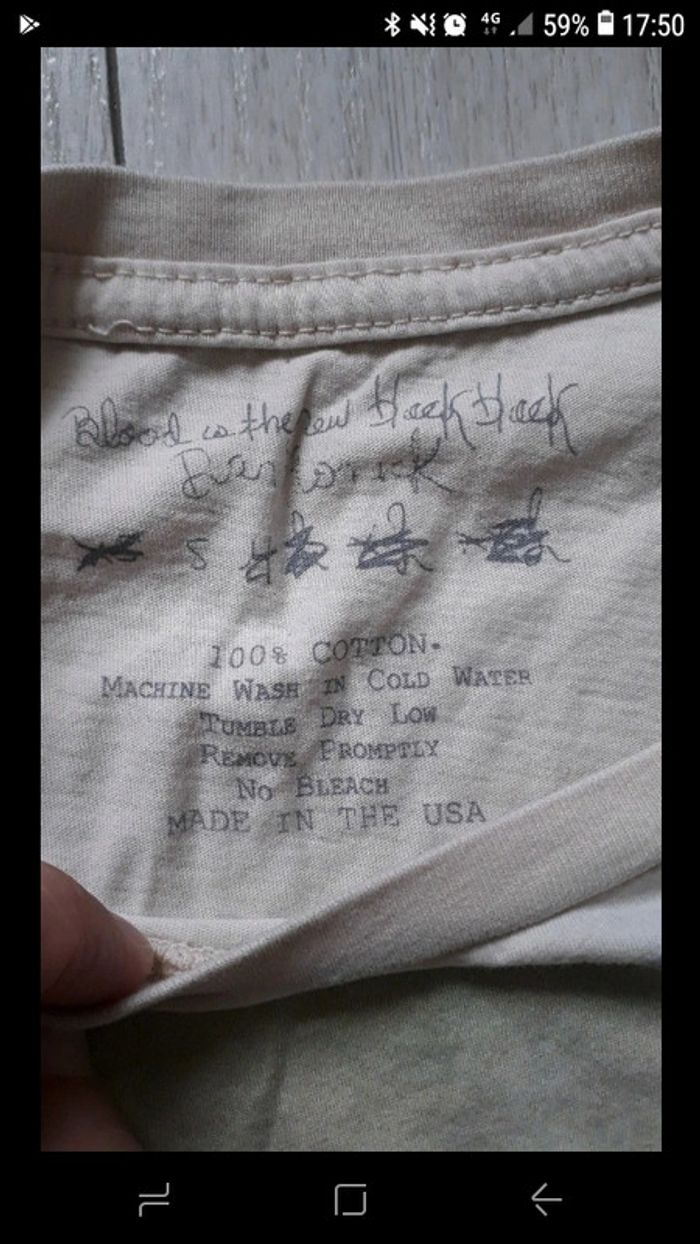 4G 59% 17:50
Blood is the new Black Black
S
100% COTTON.
MACHINE WASH IN COLD WATER
TUMBLE DRY LOW
REMOVE PROMPTLY
NO BLEACH
MADE IN THE USA